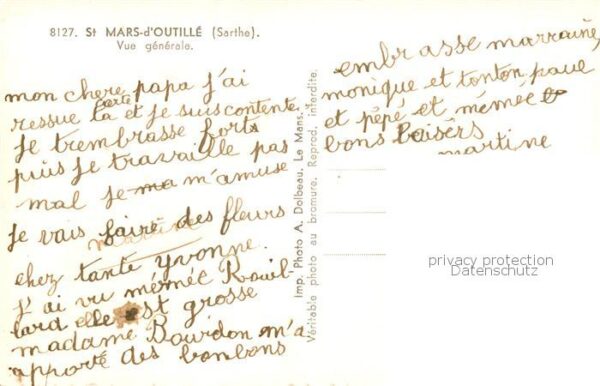 8127. St MARS-d'OUTILLÉ (Sarthe).
Vue générale.
mon chere papa j'ai
ressue ta carte et je suis contente.
Je trembrasse forts
puis je travaille pas
mal je ma m'amuse
je vais faire des fleurs
chez tante yvonne.
j'ai vu mémée Rouil-
lard elle est grosse
madame Bourdon m'a
apporté des bonbons
embrasse marraine,
monique et tonton paul
et pépé et mémée
bons baisers
martine
Imp. Photo A. Dolbeau. Le Mans.
Véritable photo au bromure. Reprod. interdite.
privacy protection
Datenschutz